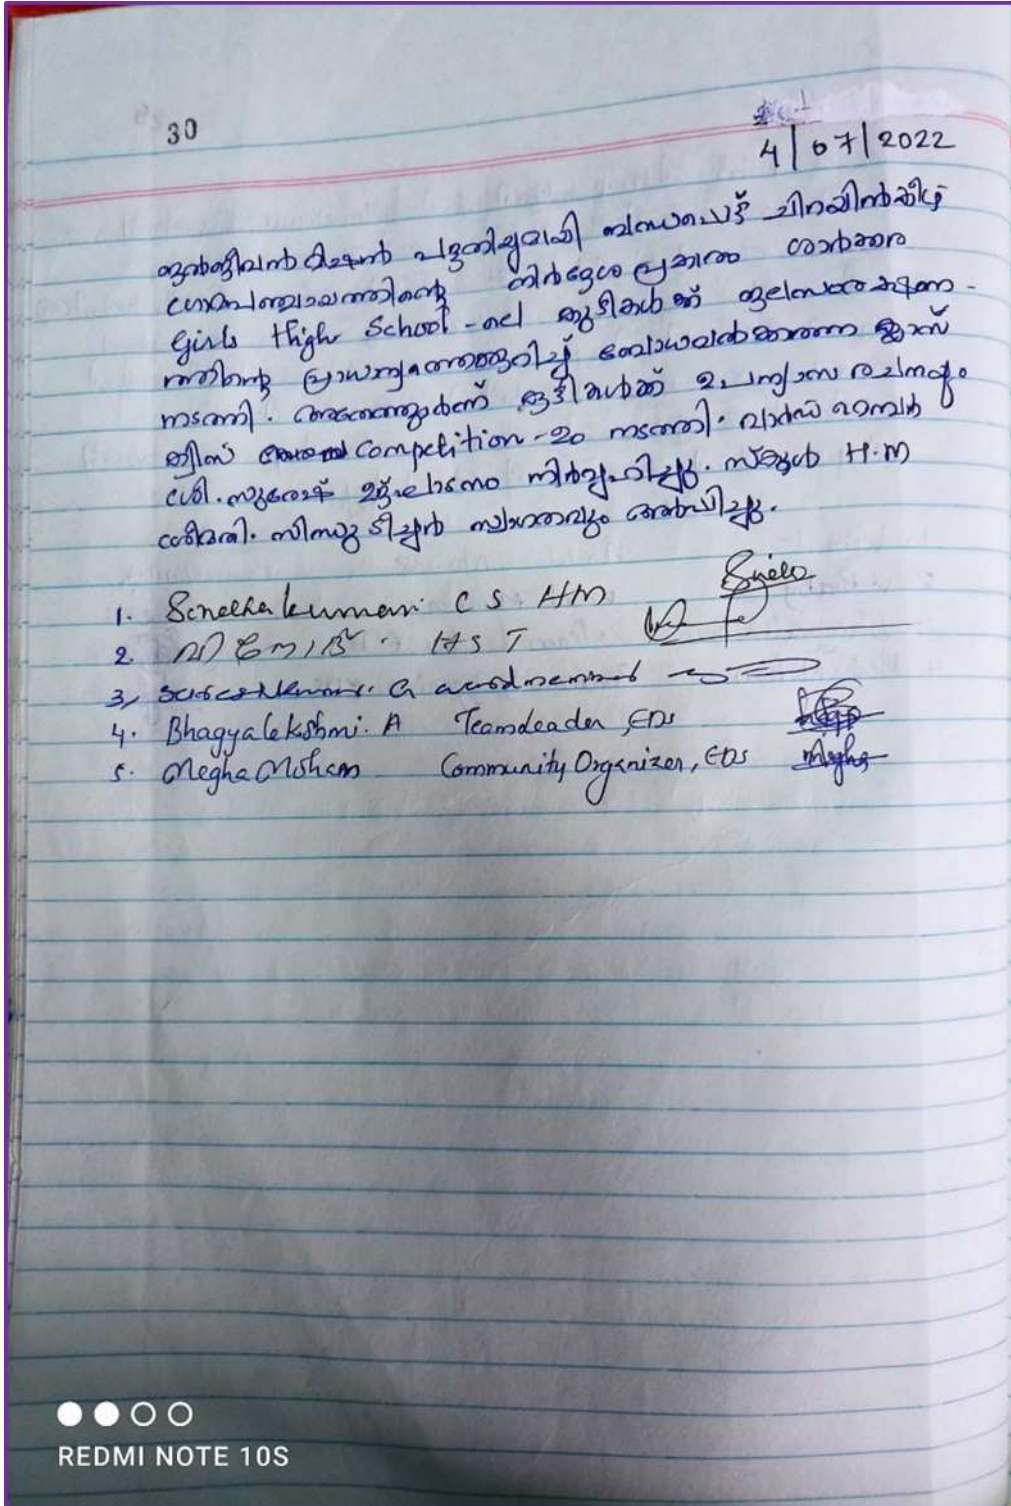 30
4/07/2022
ജൽജീവൻ മിഷൻ പദ്ധതിയുമായി ബന്ധപെട്ട് ചിറയിൻകീഴ്
ഗ്രാമപഞ്ചായത്തിന്റെ നിർദ്ദേശ പ്രകാരം ശാർക്കര
Girls High School-ലെ കുട്ടികൾക്ക് ജലസംരക്ഷണ-
ത്തിന്റെ പ്രാധാന്യത്തെക്കുറിച്ച് ബോധവൽക്കരണ ക്ലാസ്
നടത്തി. അതേത്തുടർന്ന് കുട്ടികൾക്ക് ഉപന്യാസ രചനയും
ക്വിസ് Competition-ഉം നടത്തി. വാർഡ് മെമ്പർ
ശ്രീ. സുരേഷ് ഉദ്ഘാടനം നിർവ്വഹിച്ചു. സ്കൂൾ H.M
ശ്രീമതി. സിന്ധു ടീച്ചർ സ്വാഗതവും അർപ്പിച്ചു.
1. Sinethakumari C S HM
2. HST
3,
4. Bhagyalekshmi. A Teamleader, EDS
5. Megha Mohan Community Organizer, EDS Megha
REDMI NOTE 10S